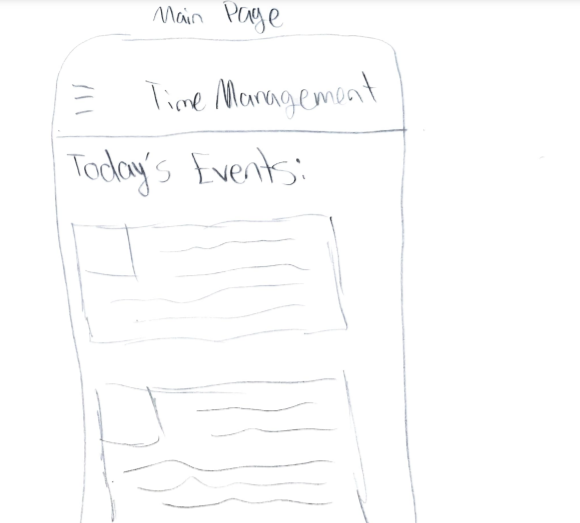 Main Page
Time Management
Today's Events: